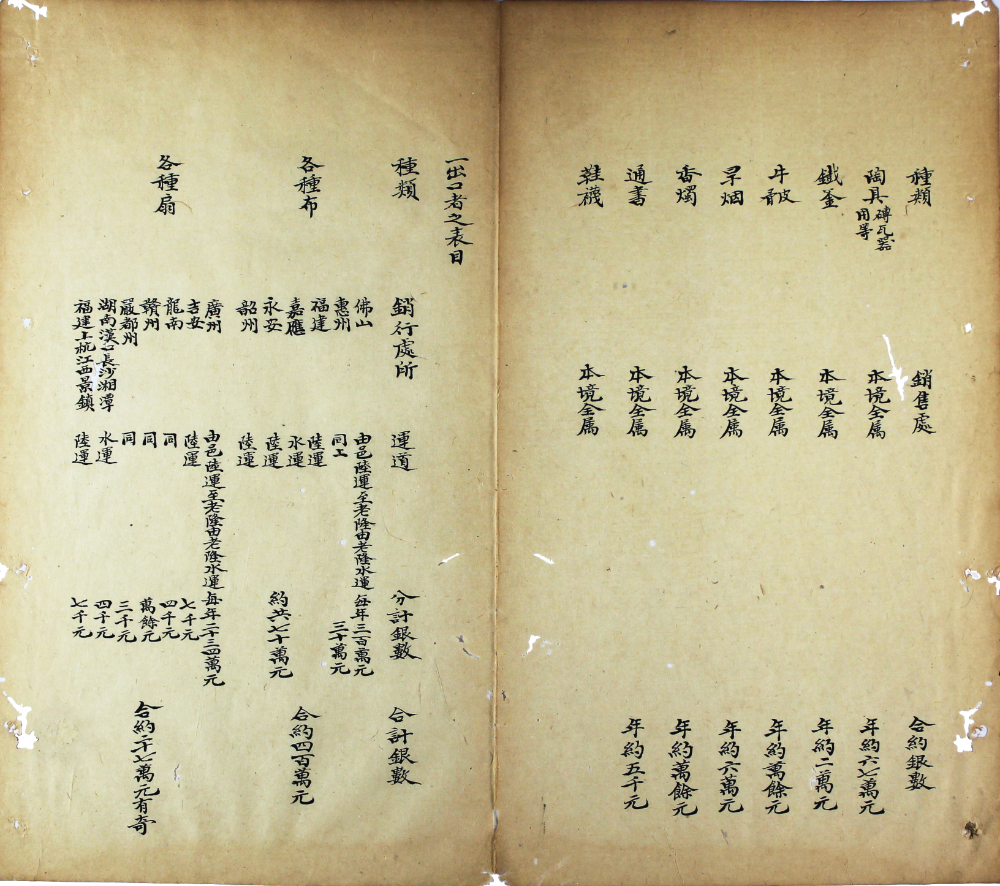 種類 銷售處 合約銀數
陶具磚瓦器用等 本境全属 年約六七萬元
鐵釜 本境全属 年約二萬元
牛皮 本境全属 年約萬餘元
旱烟 本境全属 年約六萬元
香燭 本境全属 年約萬餘元
通書 本境全属 年約五千元
鞋襪 本境全属
一出口者之表目
種類 銷行處所 運道 分計銀數 合計銀數
各種布 佛山 由邑陸運至老隆由老隆水運 每年三百萬元 合約四百萬元
惠州 同上 三十萬元
福建 陸運
嘉應 水運 約共七十萬元
永安 陸運
韶州 陸運
各種扇 廣州 由邑陸運至老隆由老隆水運 每年二十三四萬元 合約二十七萬元有奇
吉安 陸運 七千元
龍南 同 四千元
贛州 同 萬餘元
嚴都州 同 三千元
湖南漢口長沙湘潭 水運 四千元
福建上杭江西景鎮 陸運 七千元